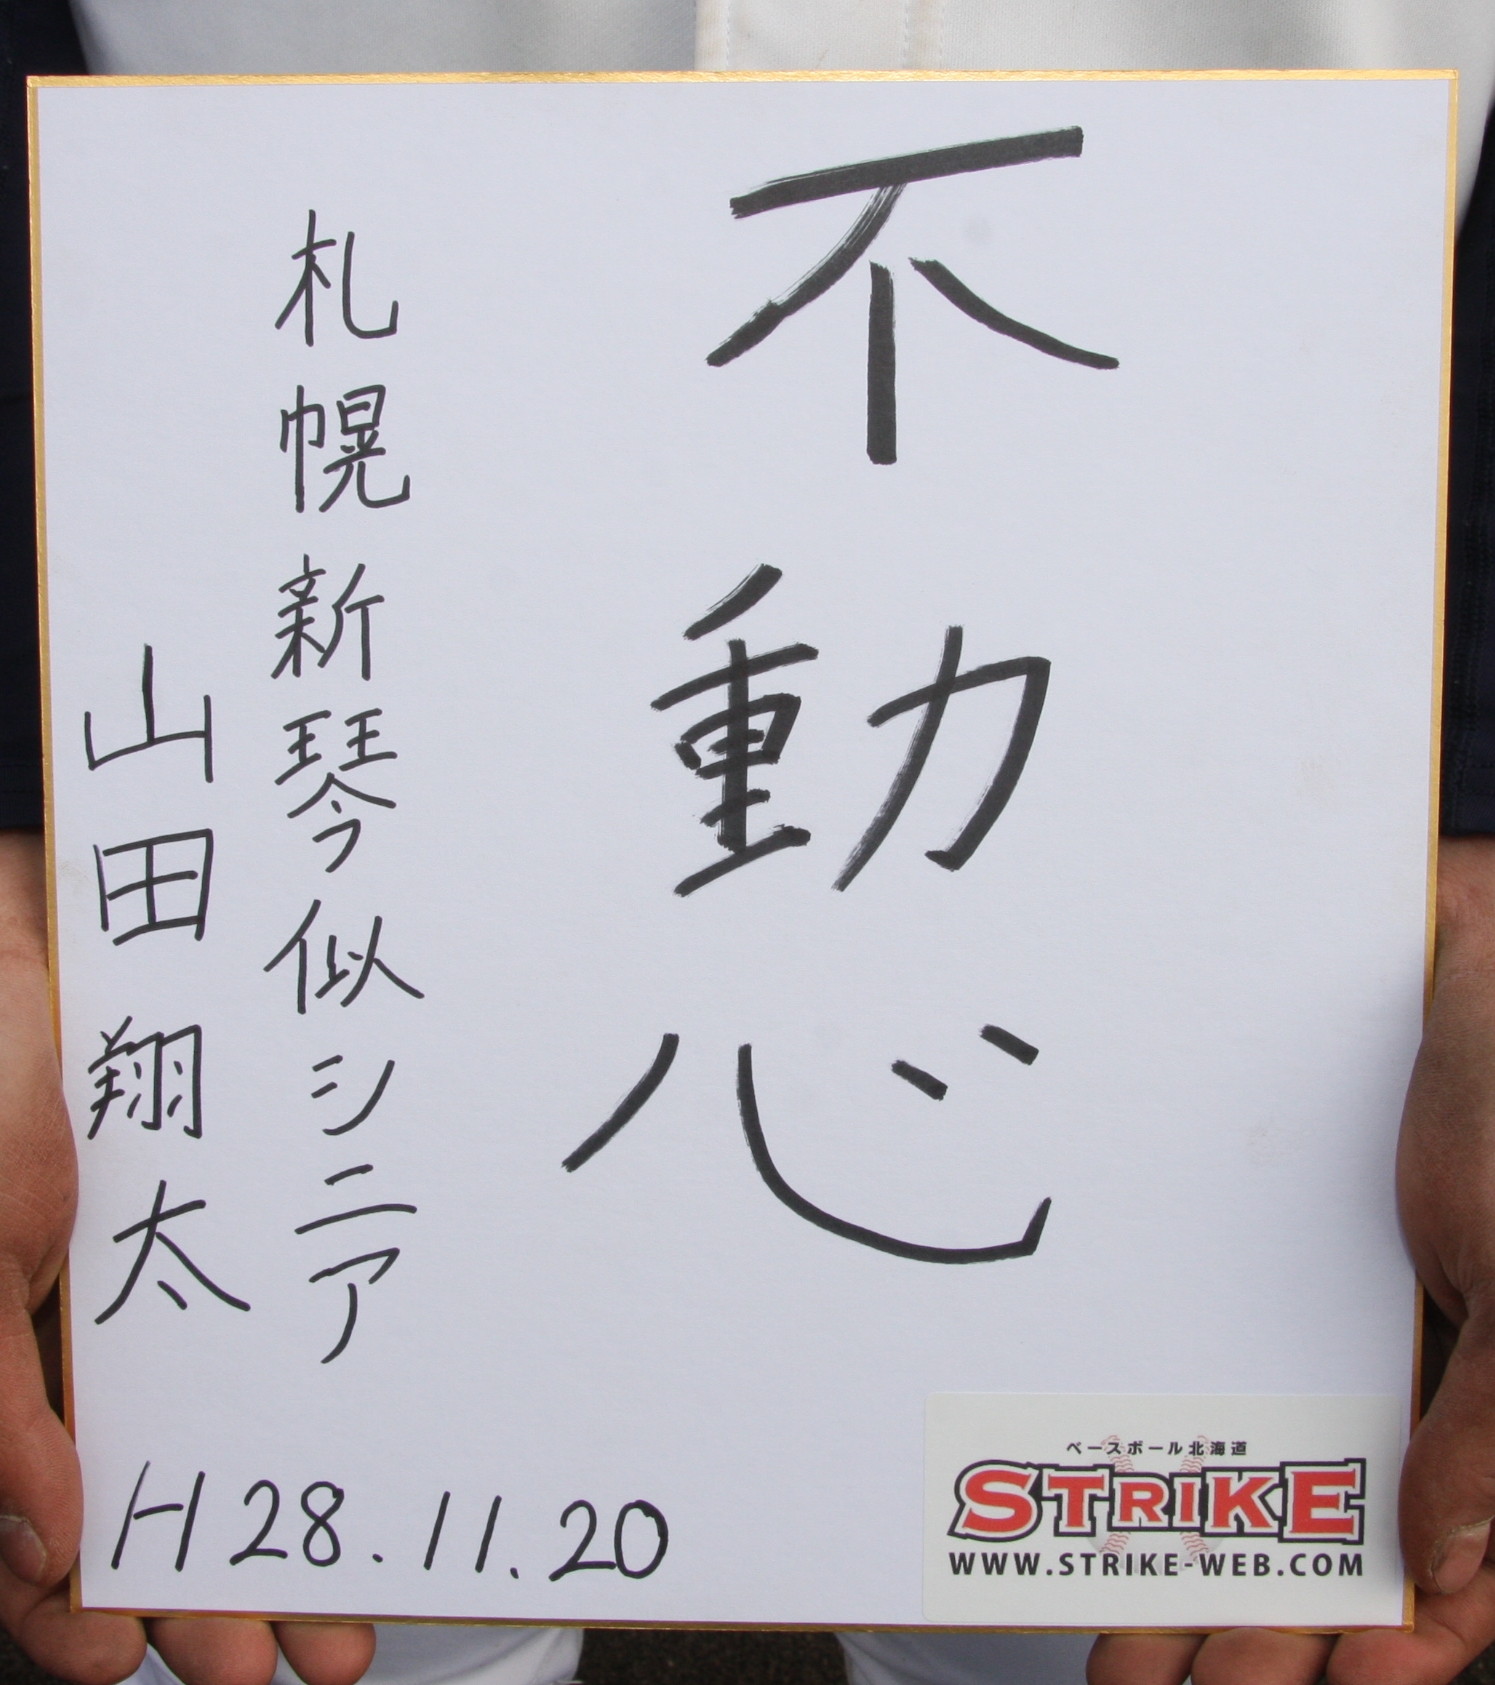 不動心
札幌新琴似シニア
山田翔太
H28.11.20
ベースボール北海道
STRIKE
WWW.STRIKE-WEB.COM